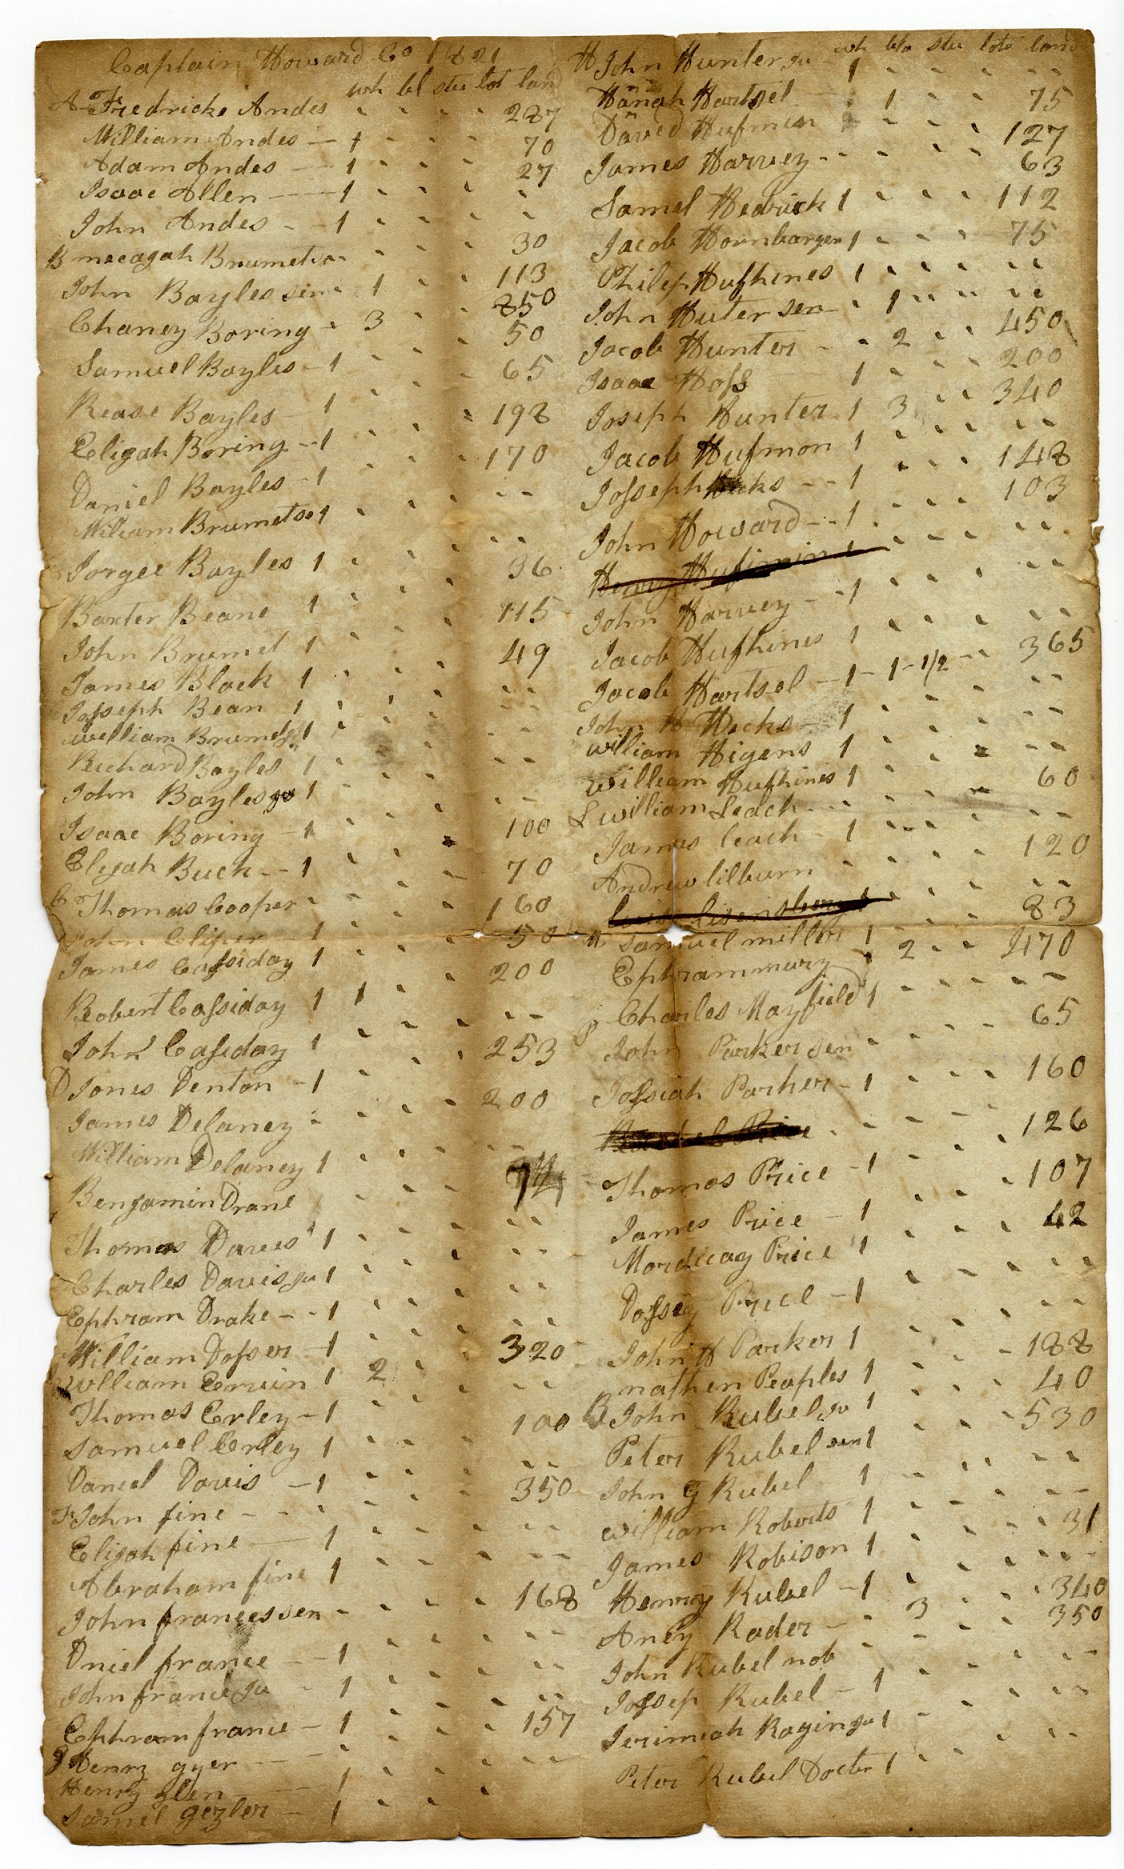 Captain Howard Co 1821
wh bl stu lot land
A Fredricke Andes - - - - 287
William Andes - 1 - - - - 70
Adam Andes - 1 - - - - 27
Isaac Allen - 1 - - - - -
John Andes - 1 - - - - 30
B macagah Brumet - - - - - 113
John Bayles sen 1 - - - 850
Chaney Boring - 3 - - - 50
Samuel Bayles - 1 - - - - 65
Rease Bayles - 1 - - - - 198
Eligah Boring - 1 - - - - 170
Daniel Bayles - 1 - - - - -
William Brumet 1 - - - - -
Jorgee Bayles 1 - - - - 36
Baxter Beane 1 - - - - 115
John Brumet 1 - - - - 49
James Black 1 - - - - -
Josseph Bean 1 - - - - -
William Brumet 1 - - - - -
Richard Bayles 1 - - - - -
John Bayles ju 1 - - - - -
Isaac Boring - 1 - - - - 100
Elijah Buck - 1 - - - - 70
C Thomas Cooper - - - - - 160
John Cliper 1 - - - - 50
James Cassiday 1 - - - - 200
Robert Cassiday 1 1 - - - -
John Casiday 1 - - - - 253
D Jones Denton - 1 - - - - 200
James Delaney -
William Delaney 1 - - - - -
Benjamin Drane 74
Thomas Davies 1 - - - - -
Charles Davis ju 1 - - - - -
Ephram Drake - 1 - - - - -
William Dosser - 1 - - - - 320
William Ervin 1 2 - - - -
Thomas Erley - 1 - - - - 100
Samuel Erley 1 - - - -
Daniel Davis - 1 - - - - 350
F John fine - - - - - - -
Eligah fine - 1 - - - - -
Abraham fine 1 - - - - 168
John frances sen - - - - - -
Dniel france - 1 - - - - -
John france ju - 1 - - - - -
Ephram france - 1 - - - - 157
G Henry gyer - - - - - -
Henry glen - 1 - - - -
Samel gezler - 1 - - - -
wh bla stu lots land
H John Hunter ju - 1 - - - -
Hanah Hartsel - 1 - - - 75
David Hufmin - - - - 127
James Harvey - - - - - 63
Samel Hedrick 1 - - - - 112
Jacob Hornbarger 1 - - - - 75
Philip Hufhines 1 - - - - -
John Huter sen - 1 - - - -
Jacob Hunter - 2 - - - 450
Isaac Hoss 1 - - - - 200
Joseph Hunter 1 3 - - - 340
Jacob Hufmon 1 - - - - -
Josseph Hicks - 1 - - - - 148
John Howard - 1 - - - - 103
John Harvey - 1 - - - - -
Jacob Hufhines 1 - - - - -
Jacob Hartsel - 1 - 1 - 1/2 - - 365
John H Hecks - 1 - - - - -
William Higens 1 - - - - -
William Hufhines 1 - - - - 60
L William Leach - - - - - -
James leach - 1 - - - - 120
Andrew lilburn - - - - -
83
M Samuel miller 1 - - - -
Ephram mury - 2 - - - 470
Charles Mayfield 1 - - - - -
P John Parker sen - - - - 65
Jossiah Parker - 1 - - - - 160
126
Thomas Price - 1 - - - - 107
James Price - 1 - - - - 42
Mordicay Price 1 - - - - -
Dossey Price - 1 - - - - -
John H Parker 1 - - - - 188
nathen Peaples 1 - - - - 40
R John Rubel ju 1 - - - - 530
Peter Rubel sen 1 - - - - -
John G Rubel 1 - - - - -
William Roberts 1 - - - - 31
James Robison 1 - - - - -
Henrry Rubel - 1 - - - - 340
Aney Rader - 3 - - - 350
John Rubel nob - - - - -
Jossep Rubel - 1 - - - -
Jerimeah Ragin ju 1 - - - - -
Peter Rubel Docter 1 - - - -